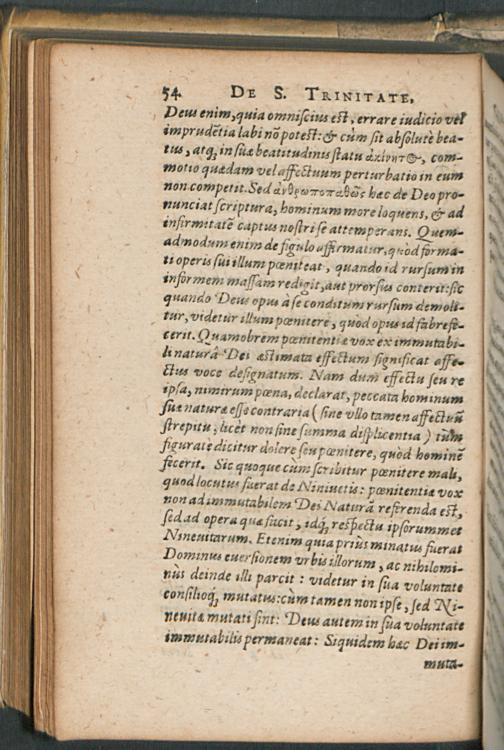 54 DE S. TRINITATE,
Deus enim, quia omniscius est, errare iudicio vel
imprudētia labi nō potest: & cùm sit absolutè bea-
tus, atq; in suæ beatitudinis statu ἀκίνητ@, com-
motio quædam vel affectuum perturbatio in eum
non competit. Sed ἀνθρωποπαθῶς hæc de Deo pro-
nunciat scriptura, hominum more loquens, & ad
infirmitatē captus nostri se attemperans. Quem-
admodum enim de figulo affirmatur, quòd forma-
ti operis sui illum pœniteat, quando id rursum in
informem massam redigit, aut prorsus conterit: sic
quando Deus opus à se conditum rursum demoli-
tur, videtur illum pœnitere, quòd opus id fabrefe-
cerit. Quamobrem pœnitentiæ vox ex immutabi-
li naturâ Dei æstimata effectum significat affe-
ctus voce designatum. Nam dum effectu seu re
ipsa, nimirum pœna, declarat, peccata hominum
suæ naturæ esse contraria (sine vllo tamen affectuū
strepitu, licèt non sine summa displicentia) tùm
figuratè dicitur dolere seu pœnitere, quòd hominē
fecerit. Sic quoque cum scribitur pœnitere mali,
quod locutus fuerat de Niniuetis: pœnitentiæ vox
non ad immutabilem Dei Naturā referenda est,
sed ad opera quæ facit, idq; respectu ipsorummet
Nineuitarum. Etenim quia priùs minatus fuerat
Dominus euersionem vrbis illorum, ac nihilomi-
nùs deinde illi parcit: videtur in sua voluntate
consilioq; mutatus: cùm tamen non ipse, sed Ni-
neuitæ mutati sint: Deus autem in sua voluntate
immutabilis permaneat: Siquidem hæc Dei im-
muta-